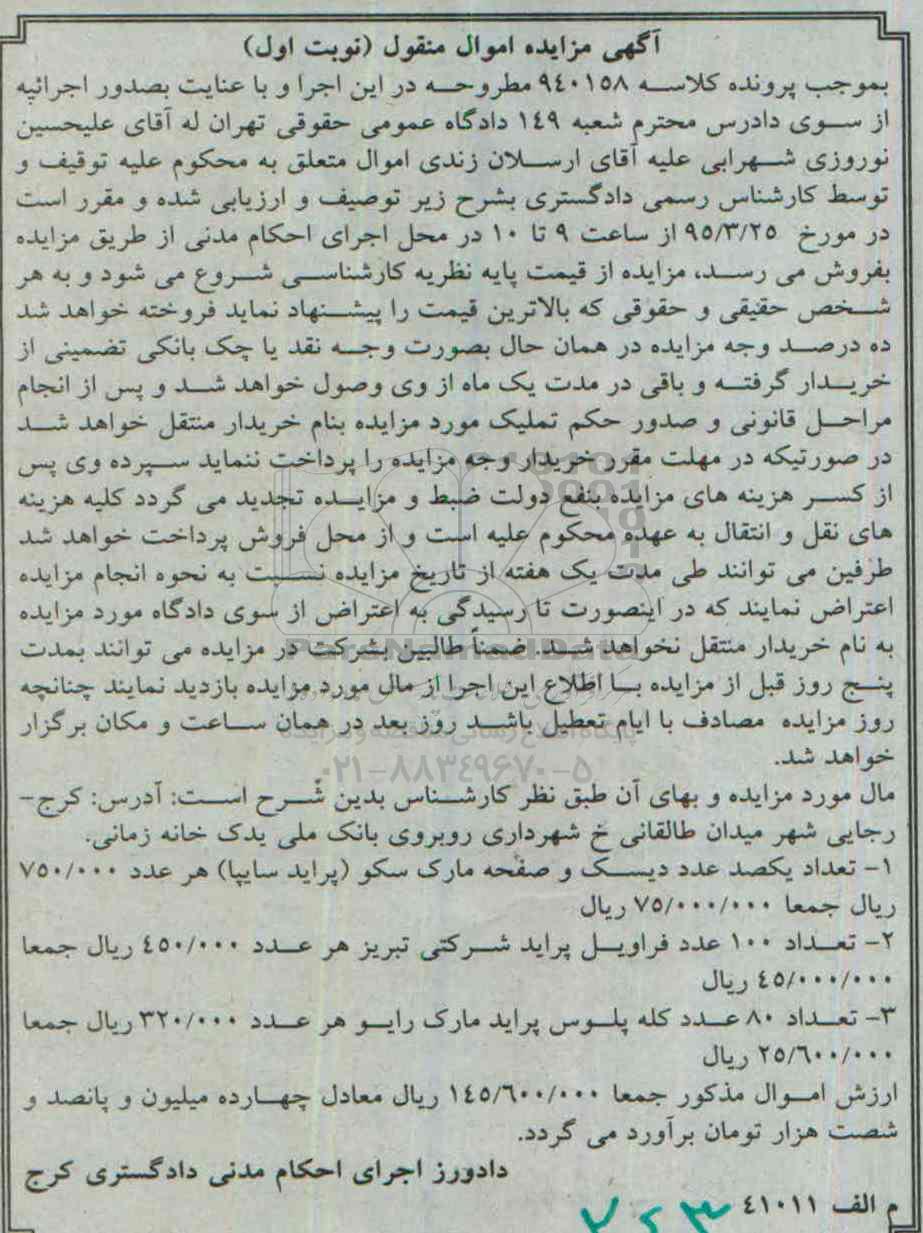 آگهی مزایده اموال منقول (نوبت اول)
بموجب پرونده کلاسه ۹٤۰۱٥۸ مطروحه در این اجرا و با عنایت بصدور اجرائیه
از سوی دادرس محترم شعبه ۱٤۹ دادگاه عمومی حقوقی تهران له آقای علیحسین
نوروزی شهرابی علیه آقای ارسلان زندی اموال متعلق به محکوم علیه توقیف و
توسط کارشناس رسمی دادگستری بشرح زیر توصیف و ارزیابی شده و مقرر است
در مورخ ۹٥/۳/۲٥ از ساعت ۹ تا ۱۰ در محل اجرای احکام مدنی از طریق مزایده
بفروش می رسد، مزایده از قیمت پایه نظریه کارشناسی شروع می شود و به هر
شخص حقیقی و حقوقی که بالاترین قیمت را پیشنهاد نماید فروخته خواهد شد
ده درصد وجه مزایده در همان حال بصورت وجه نقد یا چک بانکی تضمینی از
خریدار گرفته و باقی در مدت یک ماه از وی وصول خواهد شد و پس از انجام
مراحل قانونی و صدور حکم تملیک مورد مزایده بنام خریدار منتقل خواهد شد
در صورتیکه در مهلت مقرر خریدار وجه مزایده را پرداخت ننماید سپرده وی پس
از کسر هزینه های مزایده بنفع دولت ضبط و مزایده تجدید می گردد کلیه هزینه
های نقل و انتقال به عهده محکوم علیه است و از محل فروش پرداخت خواهد شد
طرفین می توانند طی مدت یک هفته از تاریخ مزایده نسبت به نحوه انجام مزایده
اعتراض نمایند که در اینصورت تا رسیدگی به اعتراض از سوی دادگاه مورد مزایده
به نام خریدار منتقل نخواهد شد. ضمناً طالبین بشرکت در مزایده می توانند بمدت
پنج روز قبل از مزایده با اطلاع این اجرا از مال مورد مزایده بازدید نمایند چنانچه
روز مزایده مصادف با ایام تعطیل باشد روز بعد در همان ساعت و مکان برگزار
خواهد شد.
۰۲۱-۸۸۳٤۹۶۷۰-۵
مال مورد مزایده و بهای آن طبق نظر کارشناس بدین شرح است: آدرس: کرج-
رجایی شهر میدان طالقانی خ شهرداری روبروی بانک ملی یدک خانه زمانی.
۱- تعداد یکصد عدد دیسک و صفحه مارک سکو (پراید سایپا) هر عدد ۷٥۰/۰۰۰
ریال جمعا ۷٥/۰۰۰/۰۰۰ ریال
۲- تعداد ۱۰۰ عدد فراویل پراید شرکتی تبریز هر عدد ٤٥۰/۰۰۰ ریال جمعا
٤٥/۰۰۰/۰۰۰ ریال
۳- تعداد ۸۰ عدد کله پلوس پراید مارک رایو هر عدد ۳۲۰/۰۰۰ ریال جمعا
۲٥/٦۰۰/۰۰۰ ریال
ارزش اموال مذکور جمعا ۱٤٥/٦۰۰/۰۰۰ ریال معادل چهارده میلیون و پانصد و
شصت هزار تومان برآورد می گردد.
دادورز اجرای احکام مدنی دادگستری کرج
م الف ٤۱۰۱۱